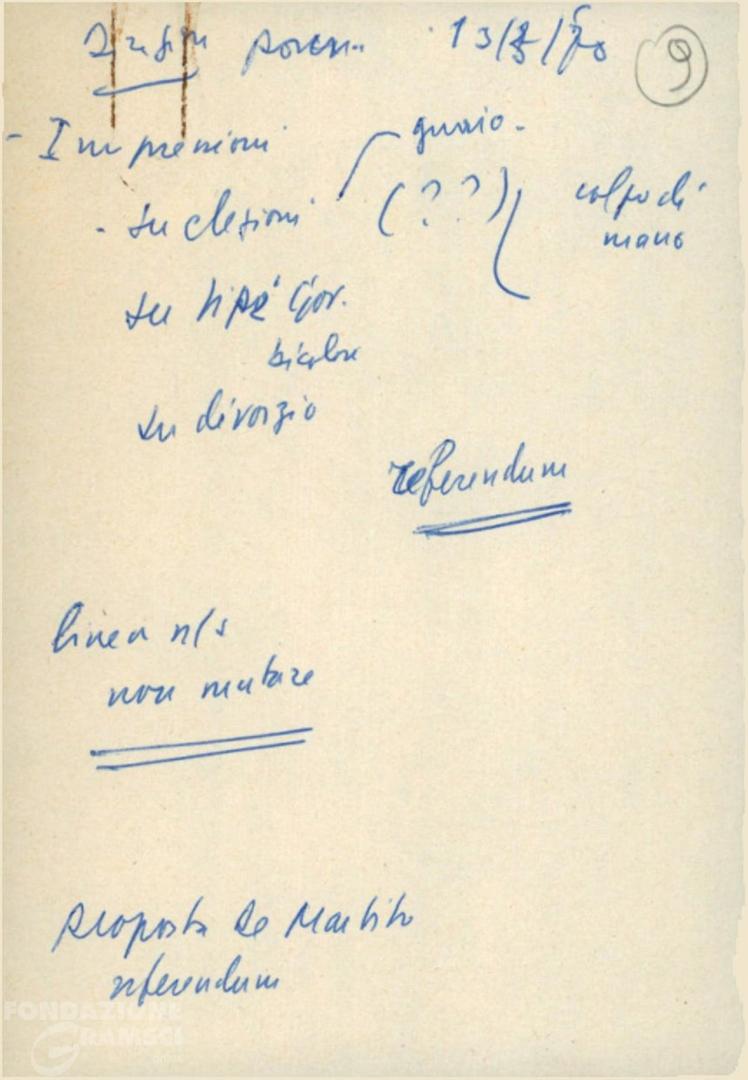 13/3/70 9
- Impressioni guaio.
- su elezioni (??) colpo di
mano
su tipo Gov.
su divorzio
referendum
linea n/s
non mutare
proposta De Martino
referendum
FONDAZIONE
GRAMSCI